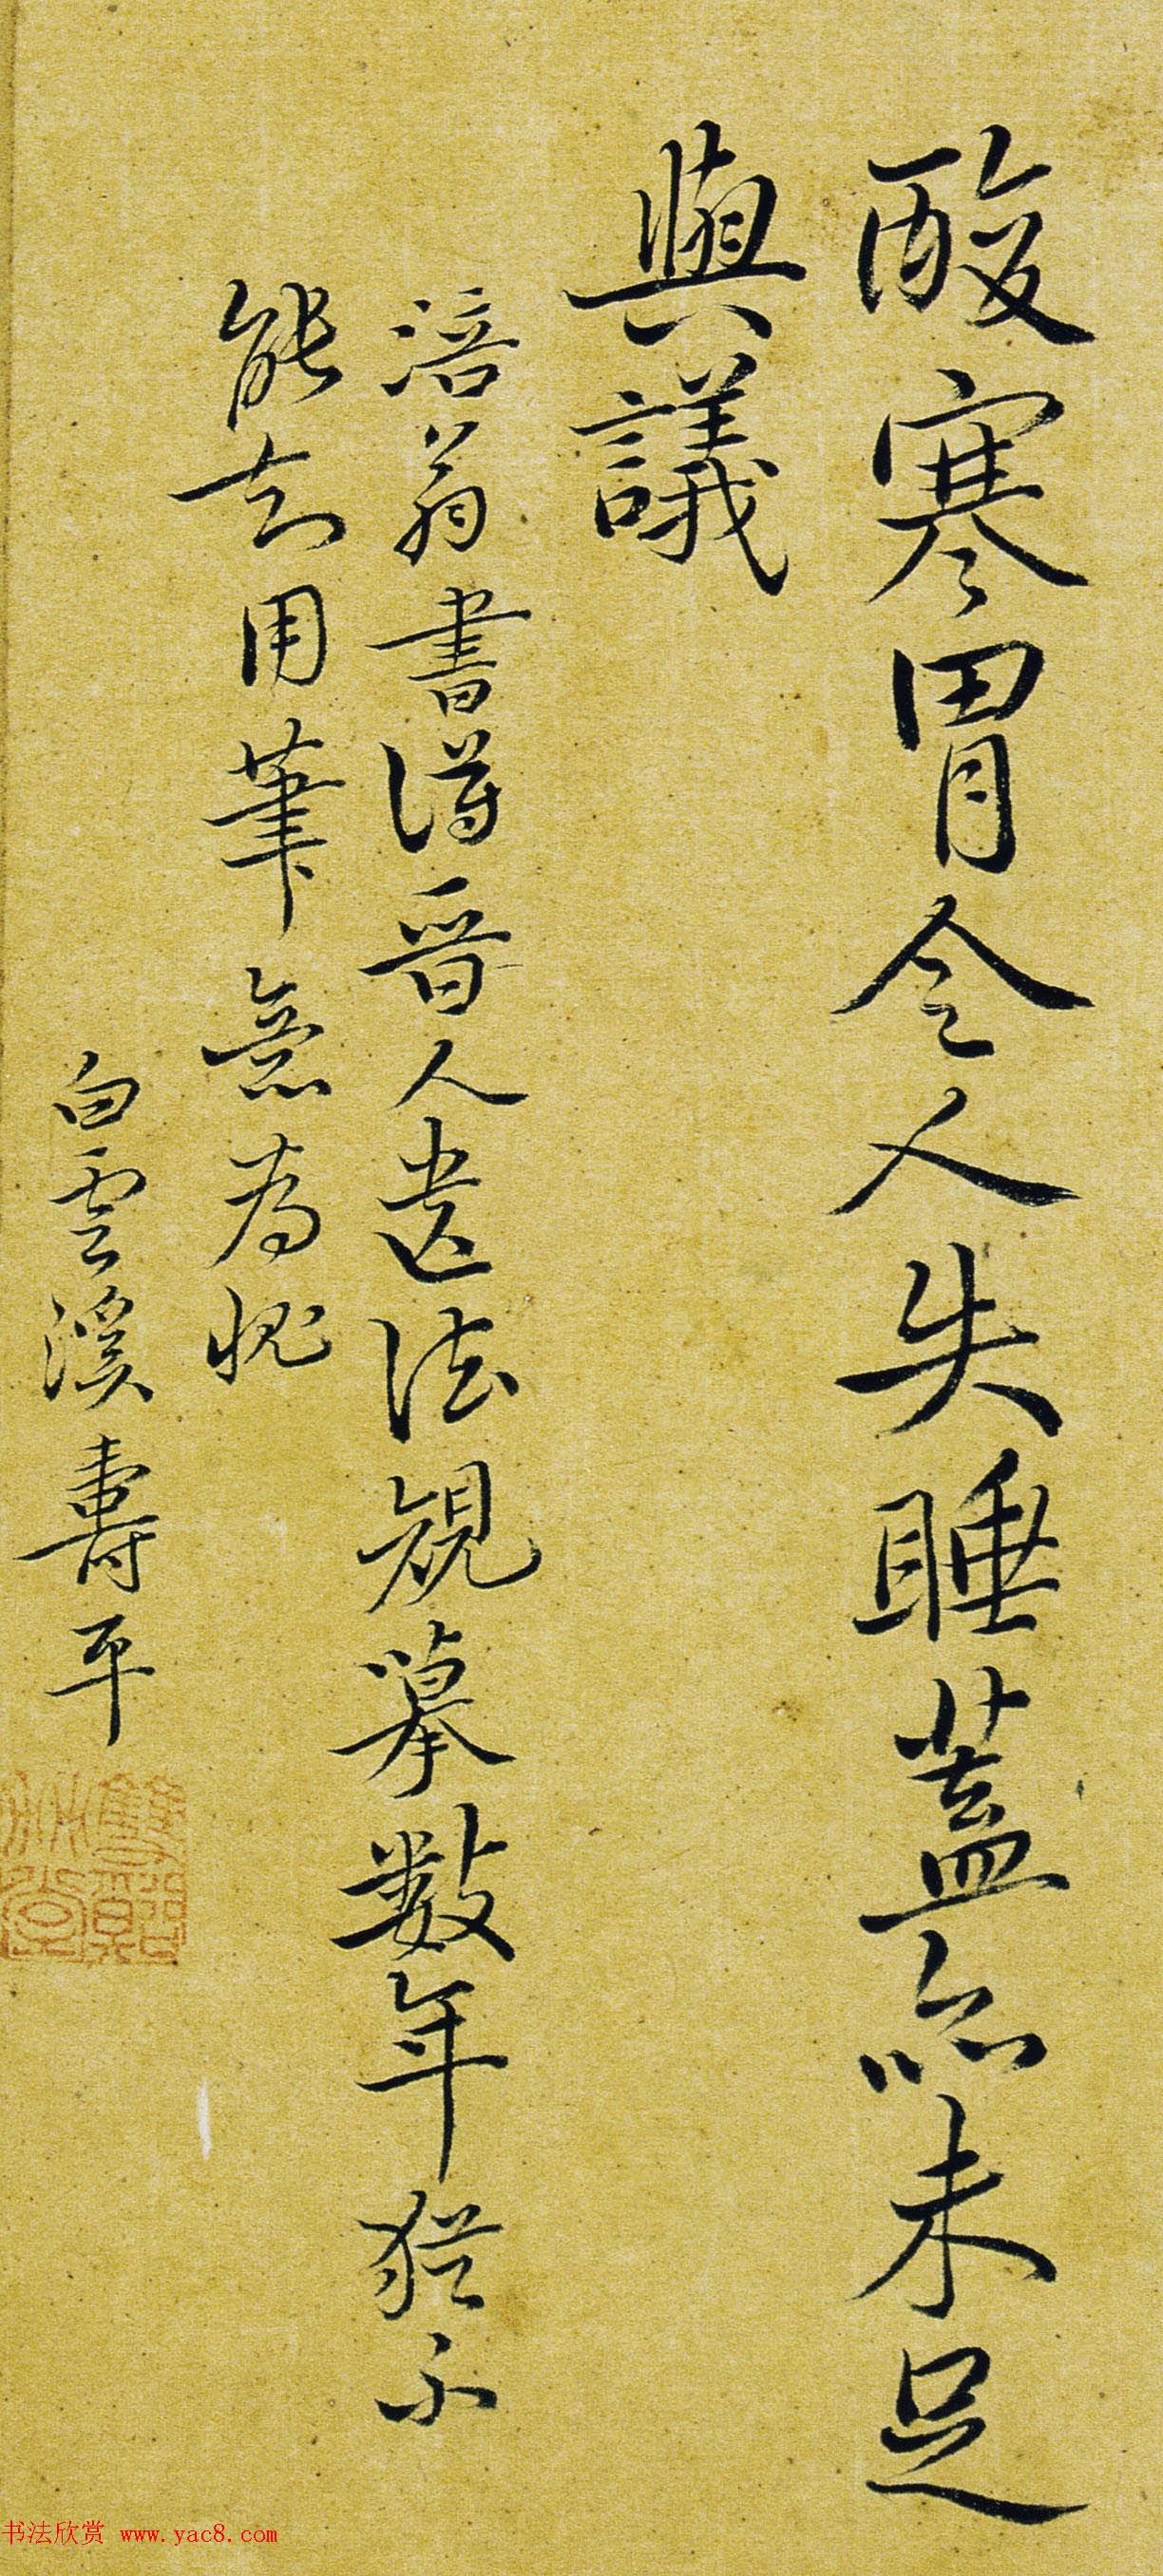 酸寒胃令人失睡蓋亦未足
與議
涪翁書得晉人遺法規摹數年猶不
能去用筆意為愧
白雲溪壽平
书法欣赏 www.yac8.com